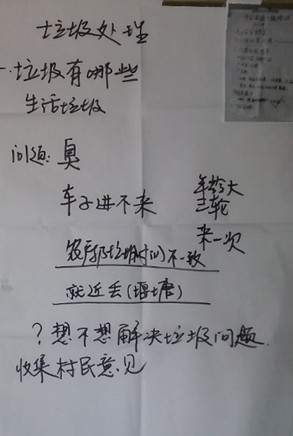 垃圾处理
一.垃圾有哪些
生活垃圾
问题:臭
车子进不来
年龄大
三轮
来一次
农户倒垃圾时间不一致
就近丢(堰塘)
?想不想解决垃圾问题.
收集村民意见